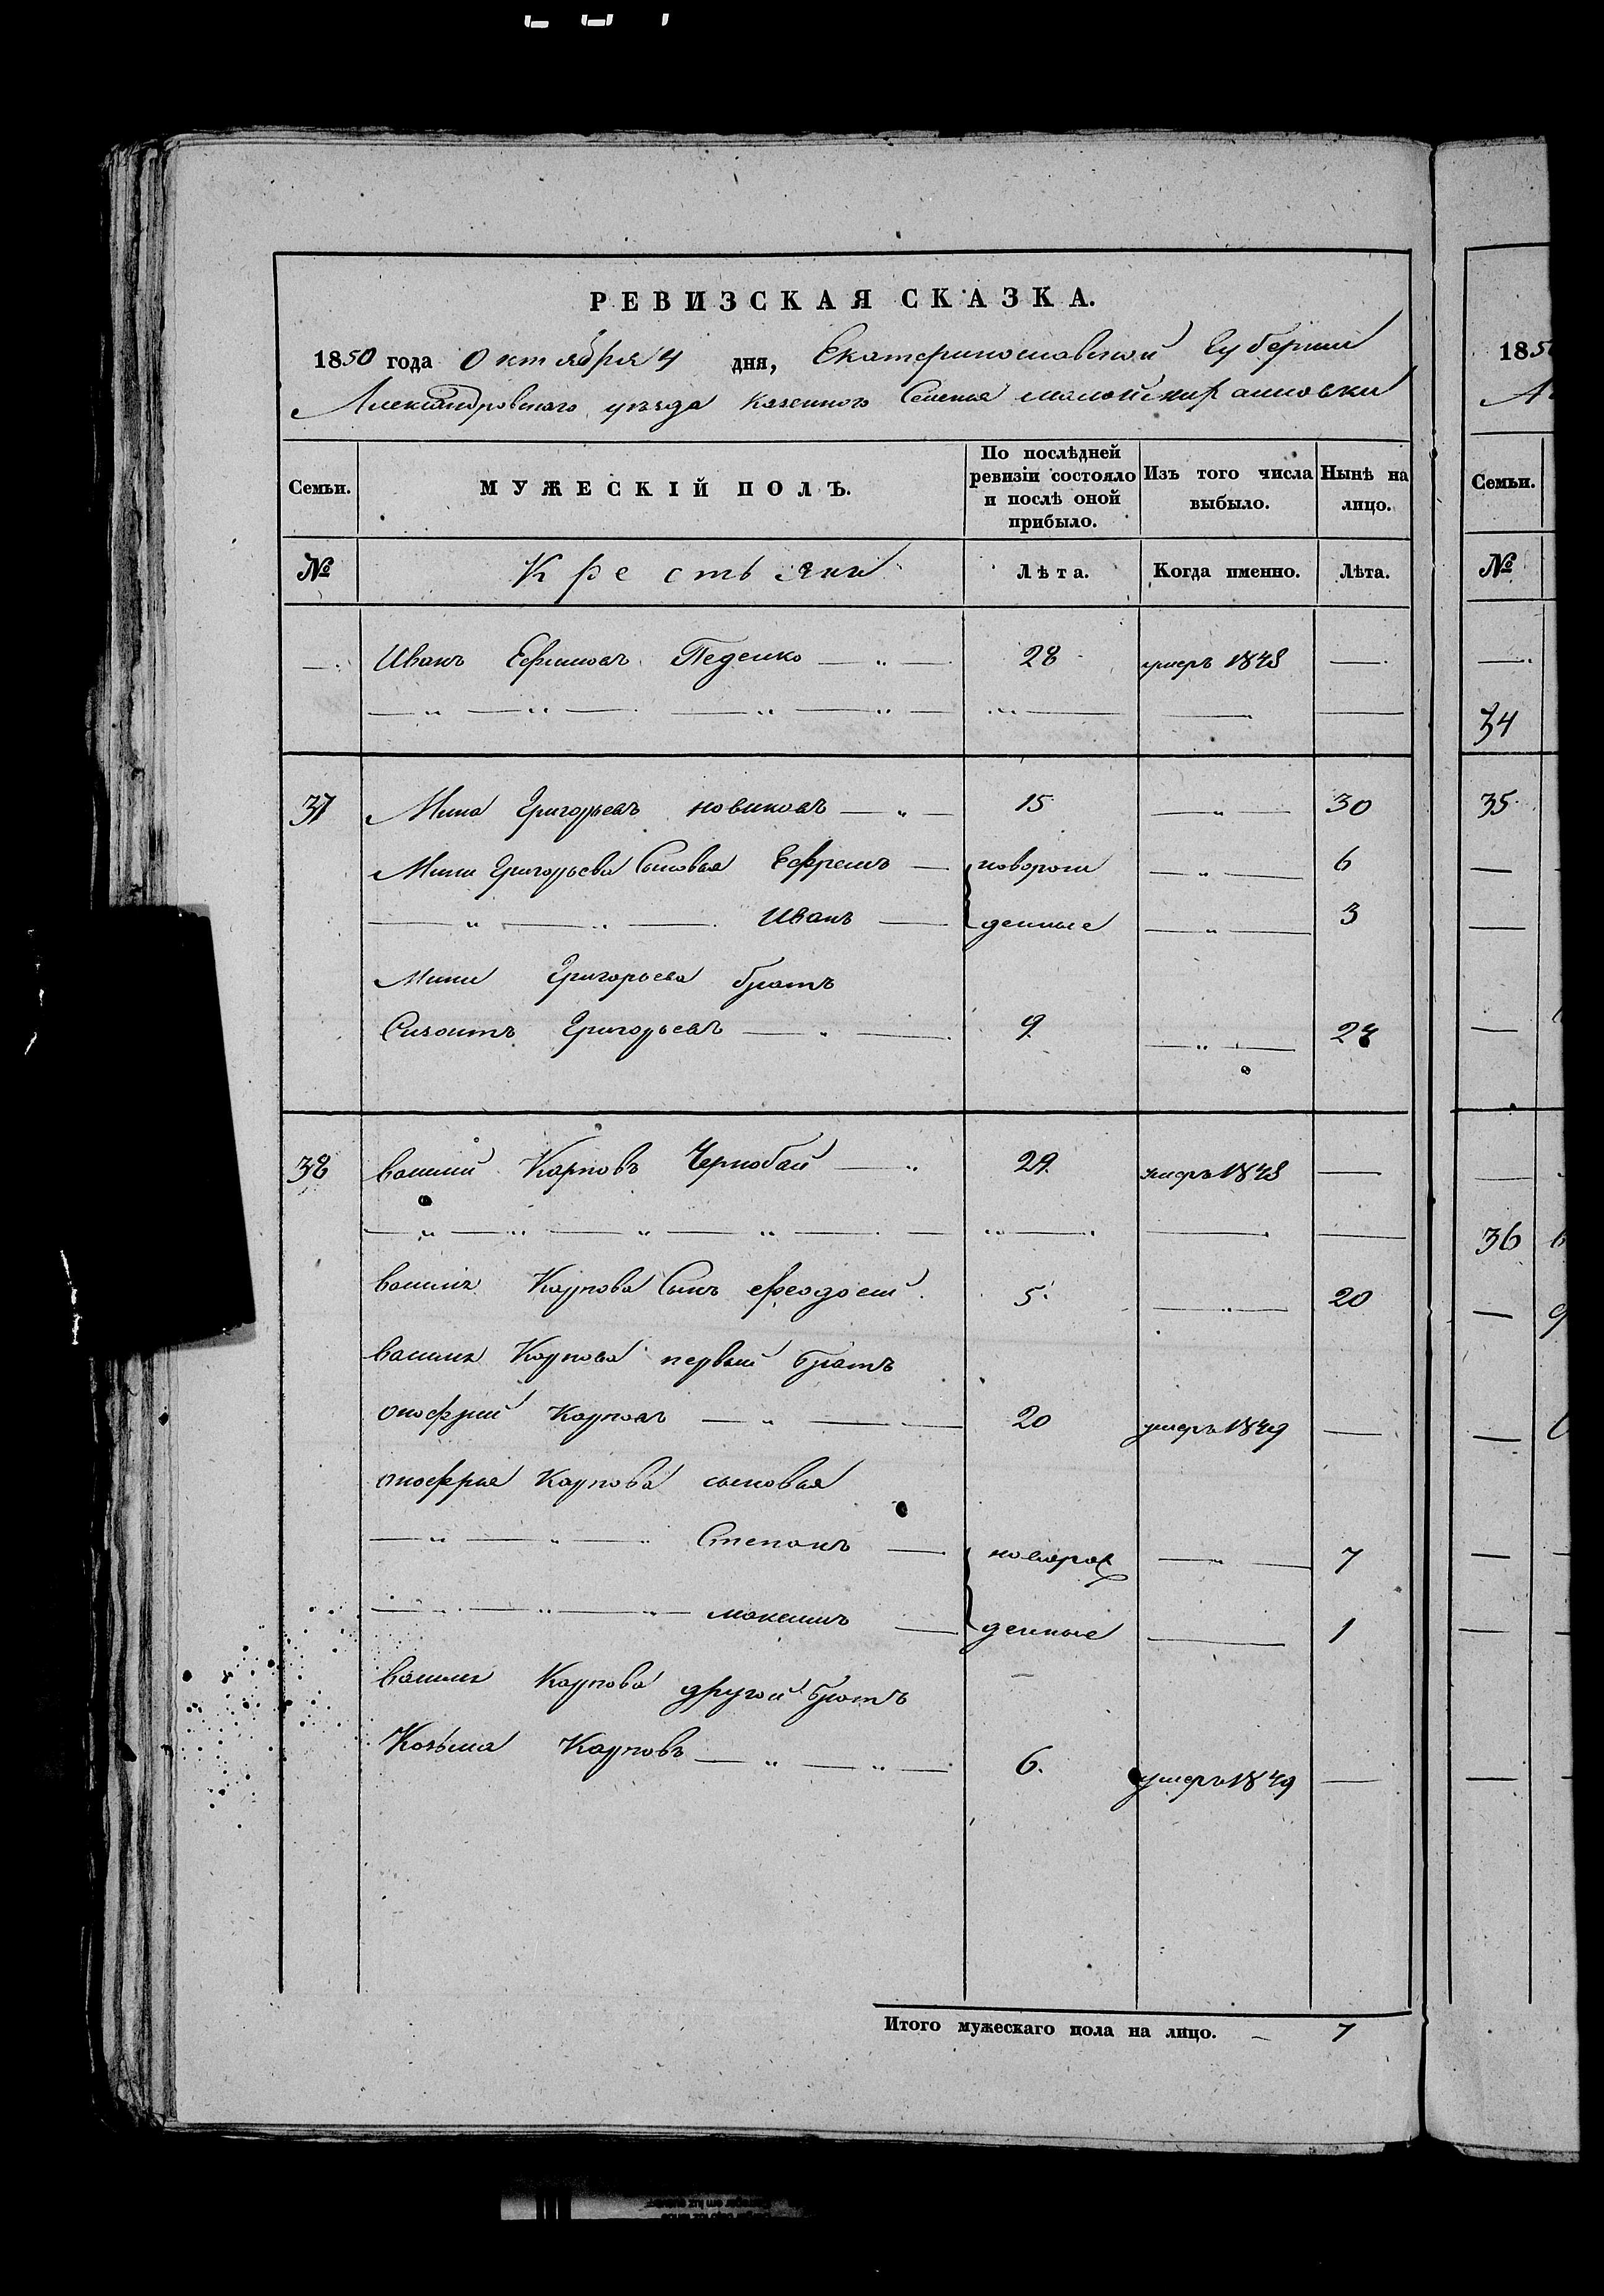 РЕВИЗСКАЯ СКАЗКА.
1850 года Октября 4 дня, Екатеринославской Губернии
Александровскаго уезда казенного Селенья малой
Семьи. МУЖЕСКІЙ ПОЛЪ. По послѣдней ревизіи состояло и послѣ оной прибыло. Изъ того числа выбыло. Нынѣ на лицо.
№ Крестьяни Лѣта. Когда именно. Лѣта.
Иванъ Ефимовъ Педенко 28 умеръ 1848
37 Мина Григорьевъ новиковъ 15 30
Мини Григорьева Сыновья Ефремъ новорож 6
Иванъ денные 3
Мини Григорьева братъ
Григорьевъ 9 28
38 василий Карповъ Чернобай 29 умеръ 1848
василия Карпова Сынъ феодосий 5 20
василия Карпова первый братъ
онофрий Карповъ 20 умеръ 1849
онофрия Карпова сыновья
Степанъ новорож 7
максимъ денные 1
василия Карпова другой братъ
Козьма Карповъ 6. умеръ 1849
Итого мужескаго пола на лицо. 7
185
Семьи.
№
34
35
36